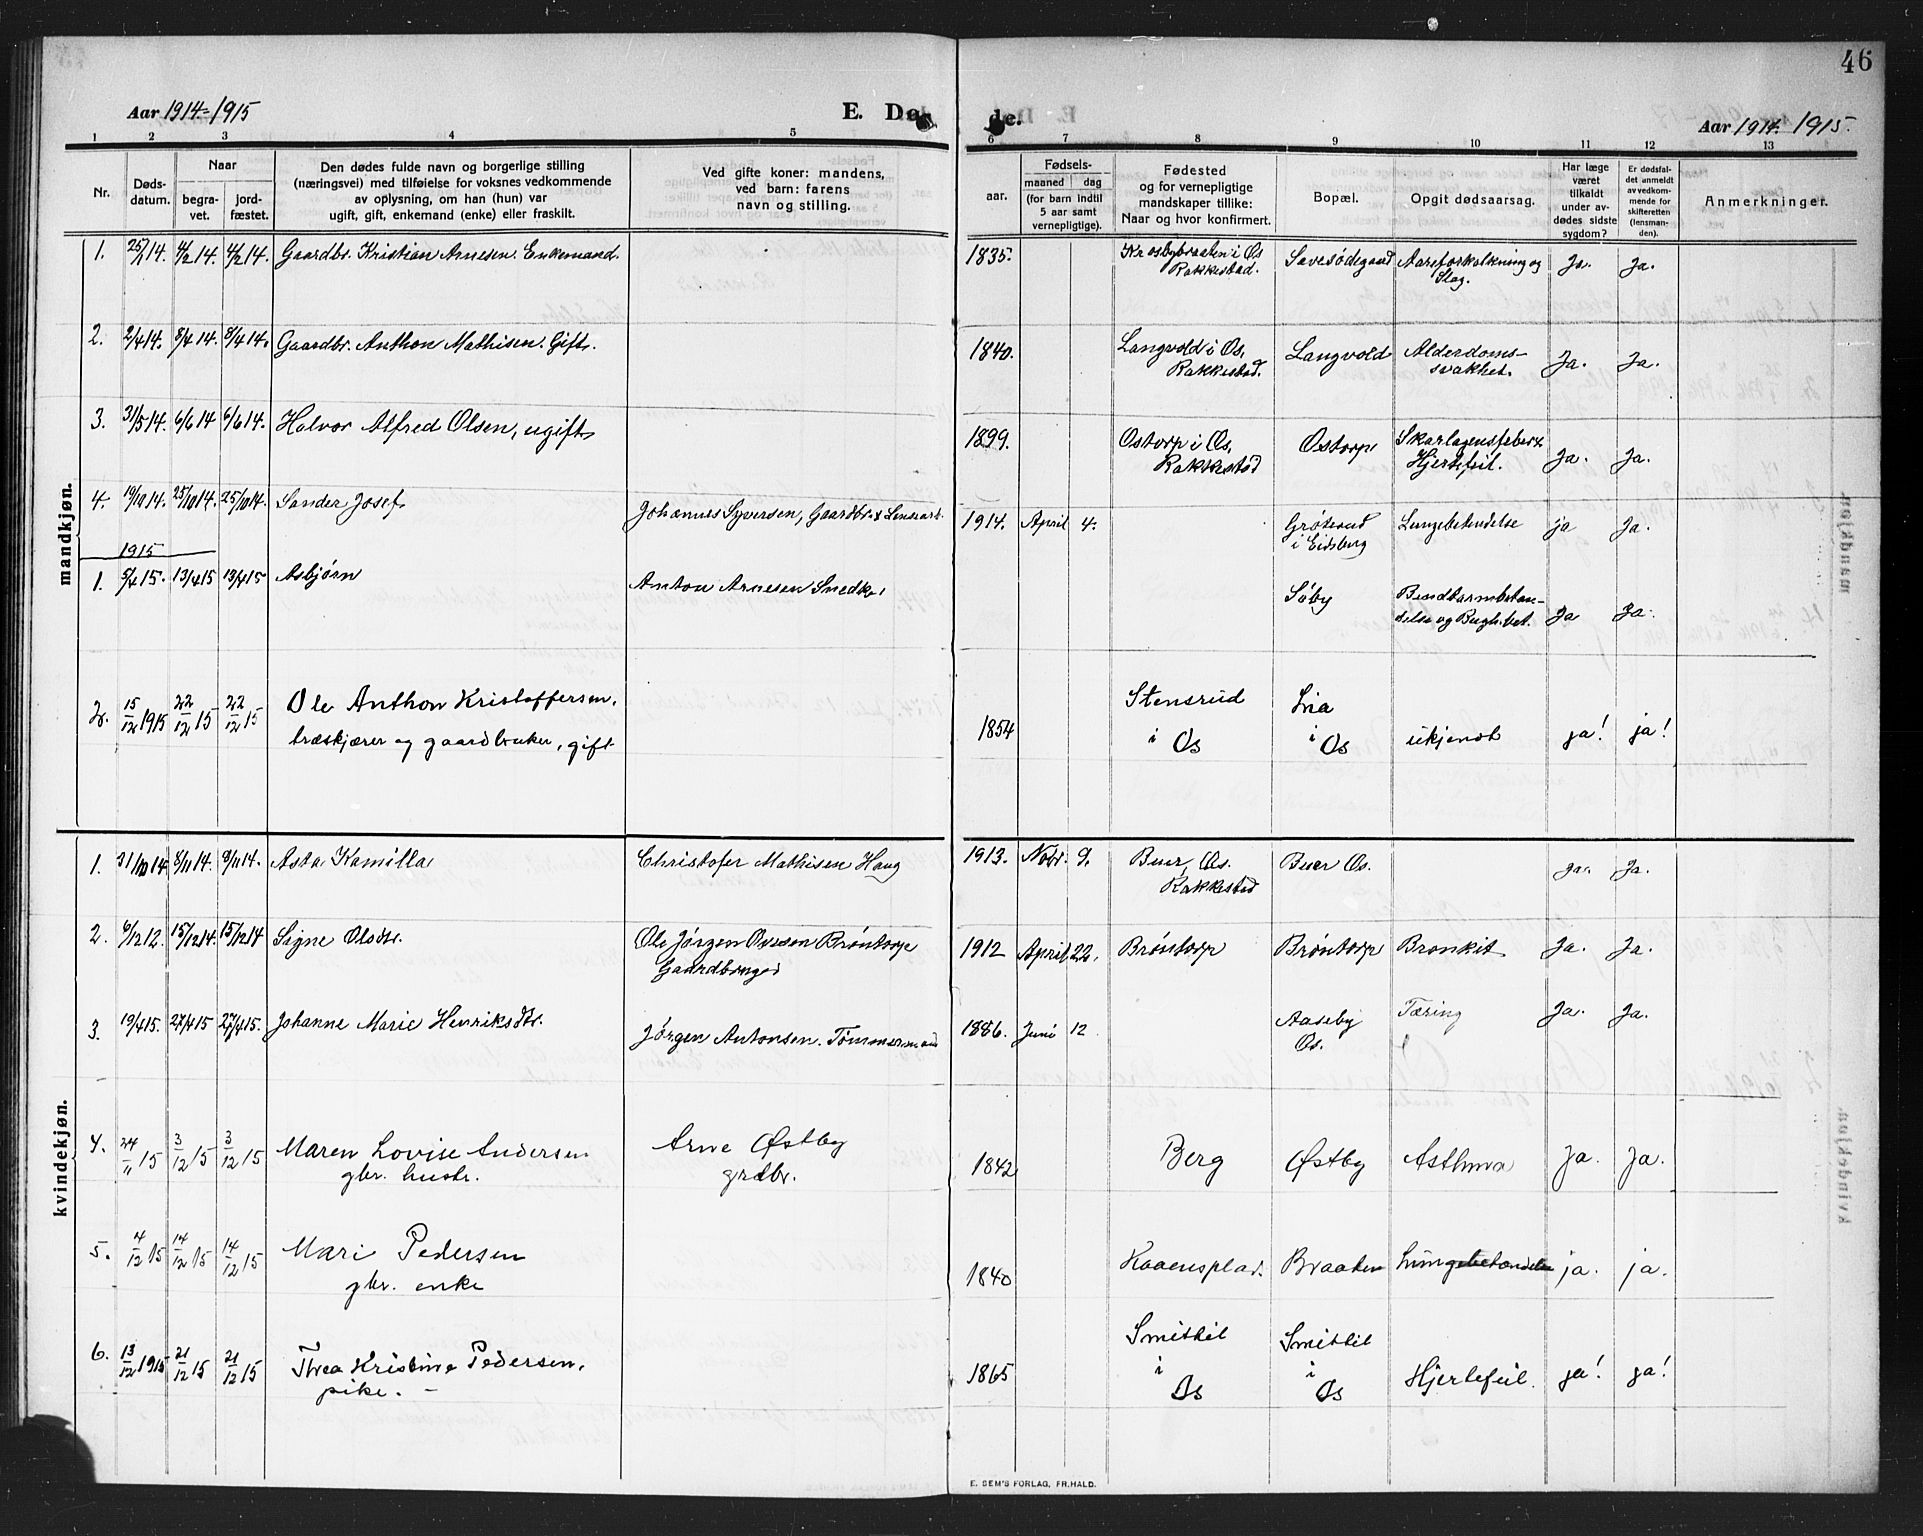 46
Aar 1914-1915
E. Dø
de.
Aar 1914-1915.
1 2 3 4 5 6 7 8 9 10 11 12 13
Nr.
Døds-
datum.
Naar
begra-
vet.
jord-
fæstet.
Den dødes fulde navn og borgerlige stilling
(næringsvei) med tilføielse for voksnes vedkommende
av oplysning, om han (hun) var
ugift, gift, enkemand (enke) eller fraskilt.
Ved gifte koner: mandens,
ved barn: farens
navn og stilling.
aar.
Fødsels-
maaned dag
(for barn indtil
5 aar samt
vernepligtige).
Fødested
og for vernepligtige
mandskaper tillike:
Naar og hvor konfirmert.
Bopæl.
Opgit dødsaarsag.
Har læge
været
tilkaldt
under av-
dødes sidste
sygdom?
Er dødsfal-
det anmeldt
av vedkom-
mende for
skifteretten
(lensman-
den).
Anmerkninger.
mandkjøn.
1. 25/1 14. 4/2 14. 4/2 14. Gaardbr. Kristian Arnesen. Enkemand. 1835. Krosbybraaten i Os Savesødegaard Aareforkalkning og Ja. Ja.
Rakkestad. Slag.
2. 2/4 14. 8/4 14. 8/4 14. Gaardbr. Anthon Mathisen. Gift. 1840. Langvold i Os, Langvold Alderdoms- Ja. Ja.
Rakkestad. svakhet.
3. 31/5 14. 6/6 14 6/6 14. Halvor Alfred Olsen, ugift 1899. Ostorp i Os, Ostorp Skarlagensfeber & Ja. Ja.
Rakkestad Hjertefeil.
4. 19/10 14. 25/10 14. 25/10 14. Sander Josef Johannes Syversen, Gaardbr. & 1914. April 4. Grøterud Lungebetendelse ja Ja.
i Eidsberg
1915
1. 5/4 15. 13/4 15 13/4 15 Asbjørn Anton Arnesen Smedk. Søby Blindtarmbeten- Ja Ja.
delse og
2. 15/12 1915 22/12 15 22/12 15 Ole Anthon Kristoffersen, 1854 Stensrud Lia ukjendt ja! ja!
træskjærer og gaardbruker, gift i Os i Os
kvindekjøn.
1. 31/10 14 8/11 14. 8/11 14. Asta Kamilla Christofer Mathisen Haug 1913. Nobr. 9. Buer, Os. Buer Os. ja. Ja.
Rakkestad
2. 6/12 12. 15/12 14. 15/12 14 Signe Olsdtr. Ole Jørgen Brøntorp 1912 April 22. Brøntorp Brøntorp Bronkit Ja. Ja.
3. 19/4 15. 27/4 15 27/4 15. Johanne Marie Henriksdtr. Jørgen Antonsen. Tømmermand 1886. Juni 12 Aaseby Tæring Ja. Ja.
Os.
4. 24/11 15 3/12 15 3/12 15 Maren Lovise Andersen Arne Østby 1842 Berg Østby Asthma Ja. Ja.
gbr. hustr. grdbr.
5. 4/12 15 14/12 15 14/12 15 Mari Pedersen 1840 Kaaensplad. Braaten Lungebetændelse ja. ja.
gbr. enke
6. 13/12 1915 21/12 15 21/12 15 Thea Kristine Pedersen, 1865 Smittil Smittil Hjertefeil. ja! ja!
pike. – i Os i Os
E. SEM'S FORLAG, FR.HALD.